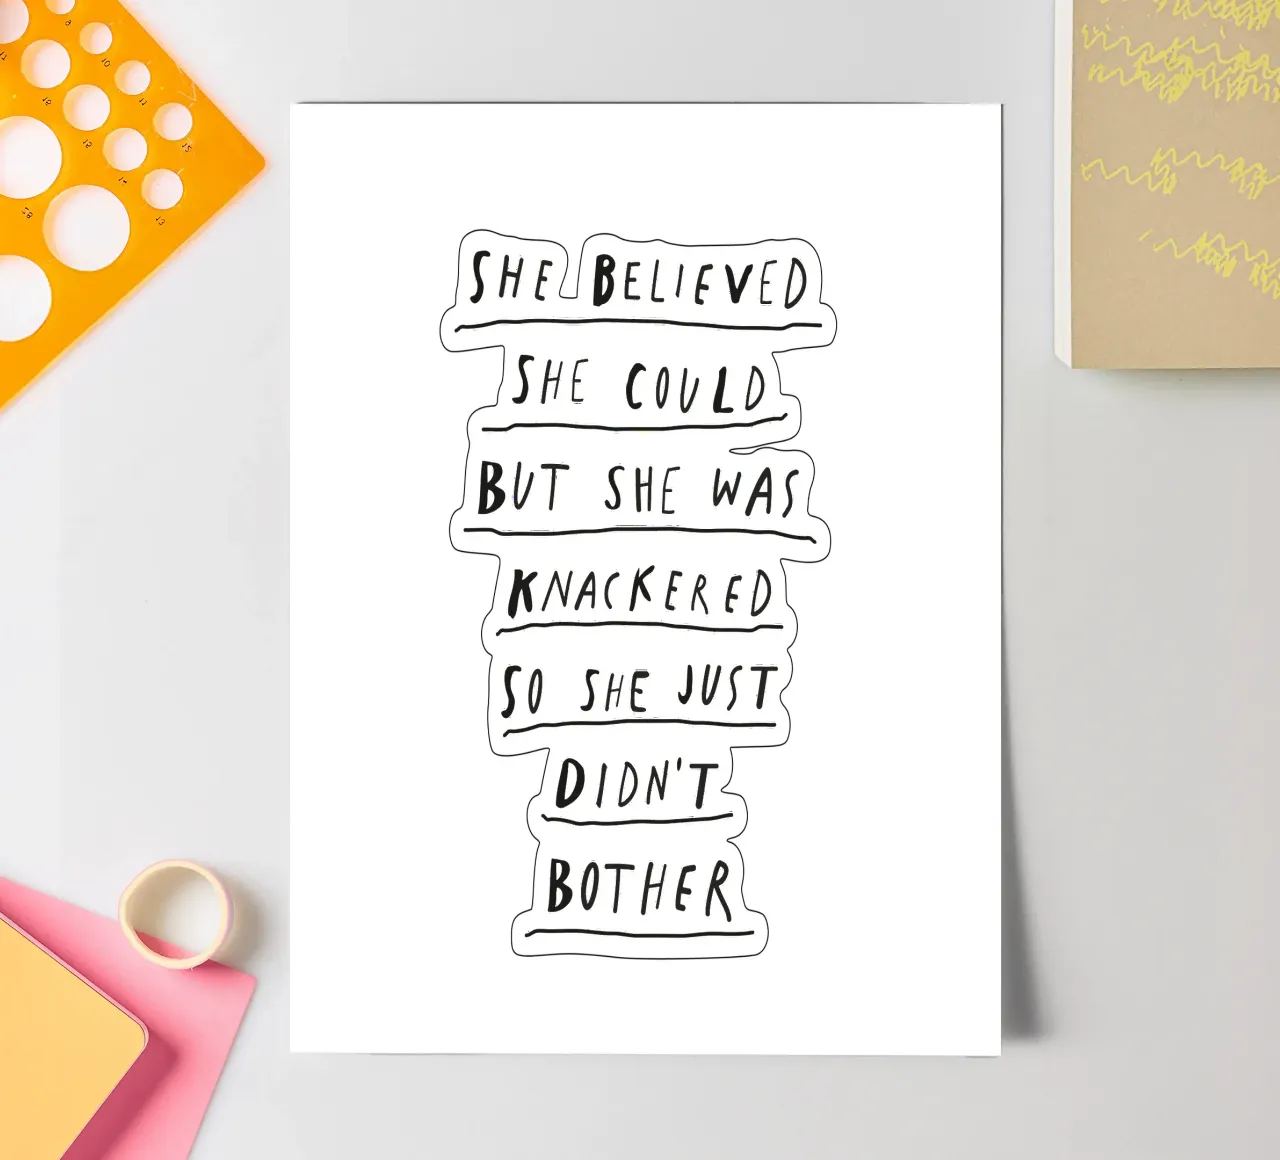 SHE BELIEVED
SHE COULD
BUT SHE WAS
KNACKERED
SO SHE JUST
DIDN'T
BOTHER